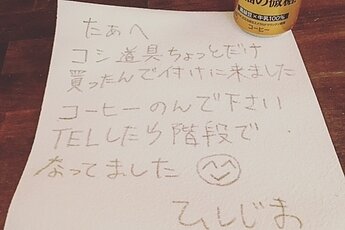 の微糖
牛乳100%
コーヒー
たあへ
コシ道具ちょっとだけ
買ったんで付けに来ました
コーヒーのんで下さい
TELしたら階段で
なってました
ひしじま